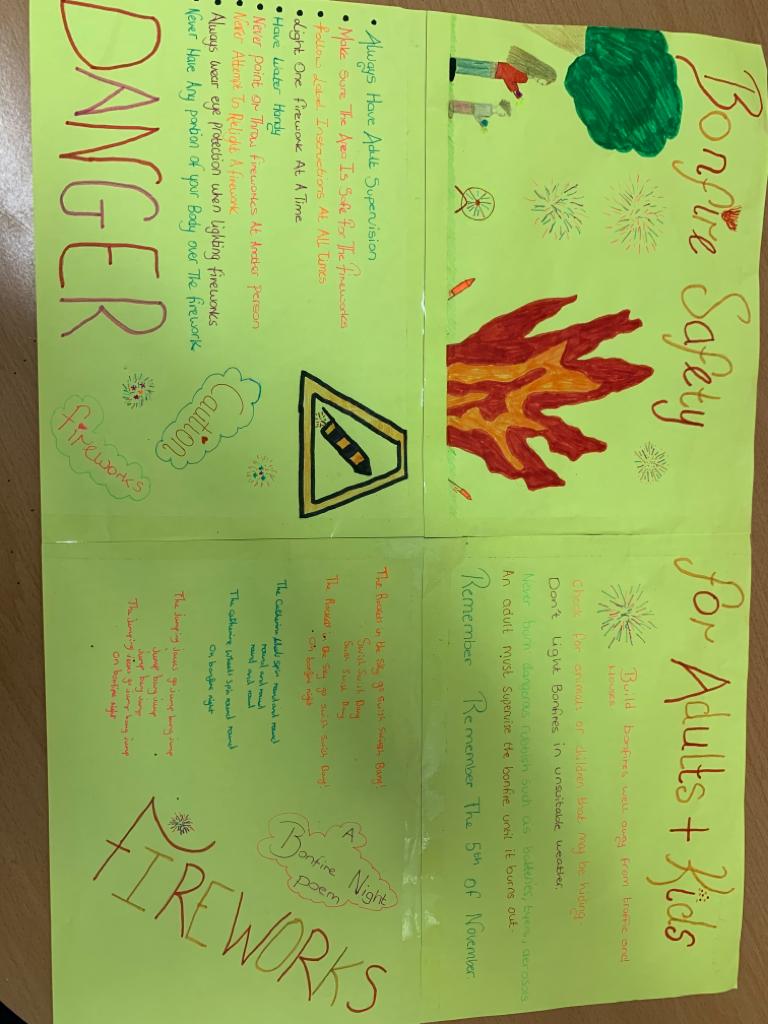 Bonfire Safety for Adults + Kids
Build bonfires well away from traffic and
houses
Check for animals or children that may be hiding
Don't Light Bonfires in unsuitable weather.
Never burn dangerous rubbish such as batteries, tyres, aerosols
An adult must supervise the bonfire until it burns out.
Remember Remember The 5th of November.
• Always Have Adult Supervision
• Make Sure The Area Is Safe For The Fireworks
• Follow Label Instructions At All Times
• Light One Firework At A Time
• Have Water Handy
• Never point or Throw fireworks At Another person
• Never Attempt To Relight A firework
• Always wear eye protection when lighting fireworks
• Never Have Any portion of your Body over The firework
DANGER
Caution
fireworks
A
Bonfire Night
poem
The Rocket in the Sky go Swish Swish Bang!
Swish Swish Bang
Swish Swish Bang
The Rocket in the Sky go Swish Swish Bang!
on bonfire night
The Catherine wheels spin round and round
round and round
round and round
The catherine wheels spin round round
On bonfire night
The Jumping Jacks go Jump bang Jump
Jump bang Jump
Jump bang Jump
The Jumping Jacks go Jump bang Jump
On bonfire night
FIREWORKS